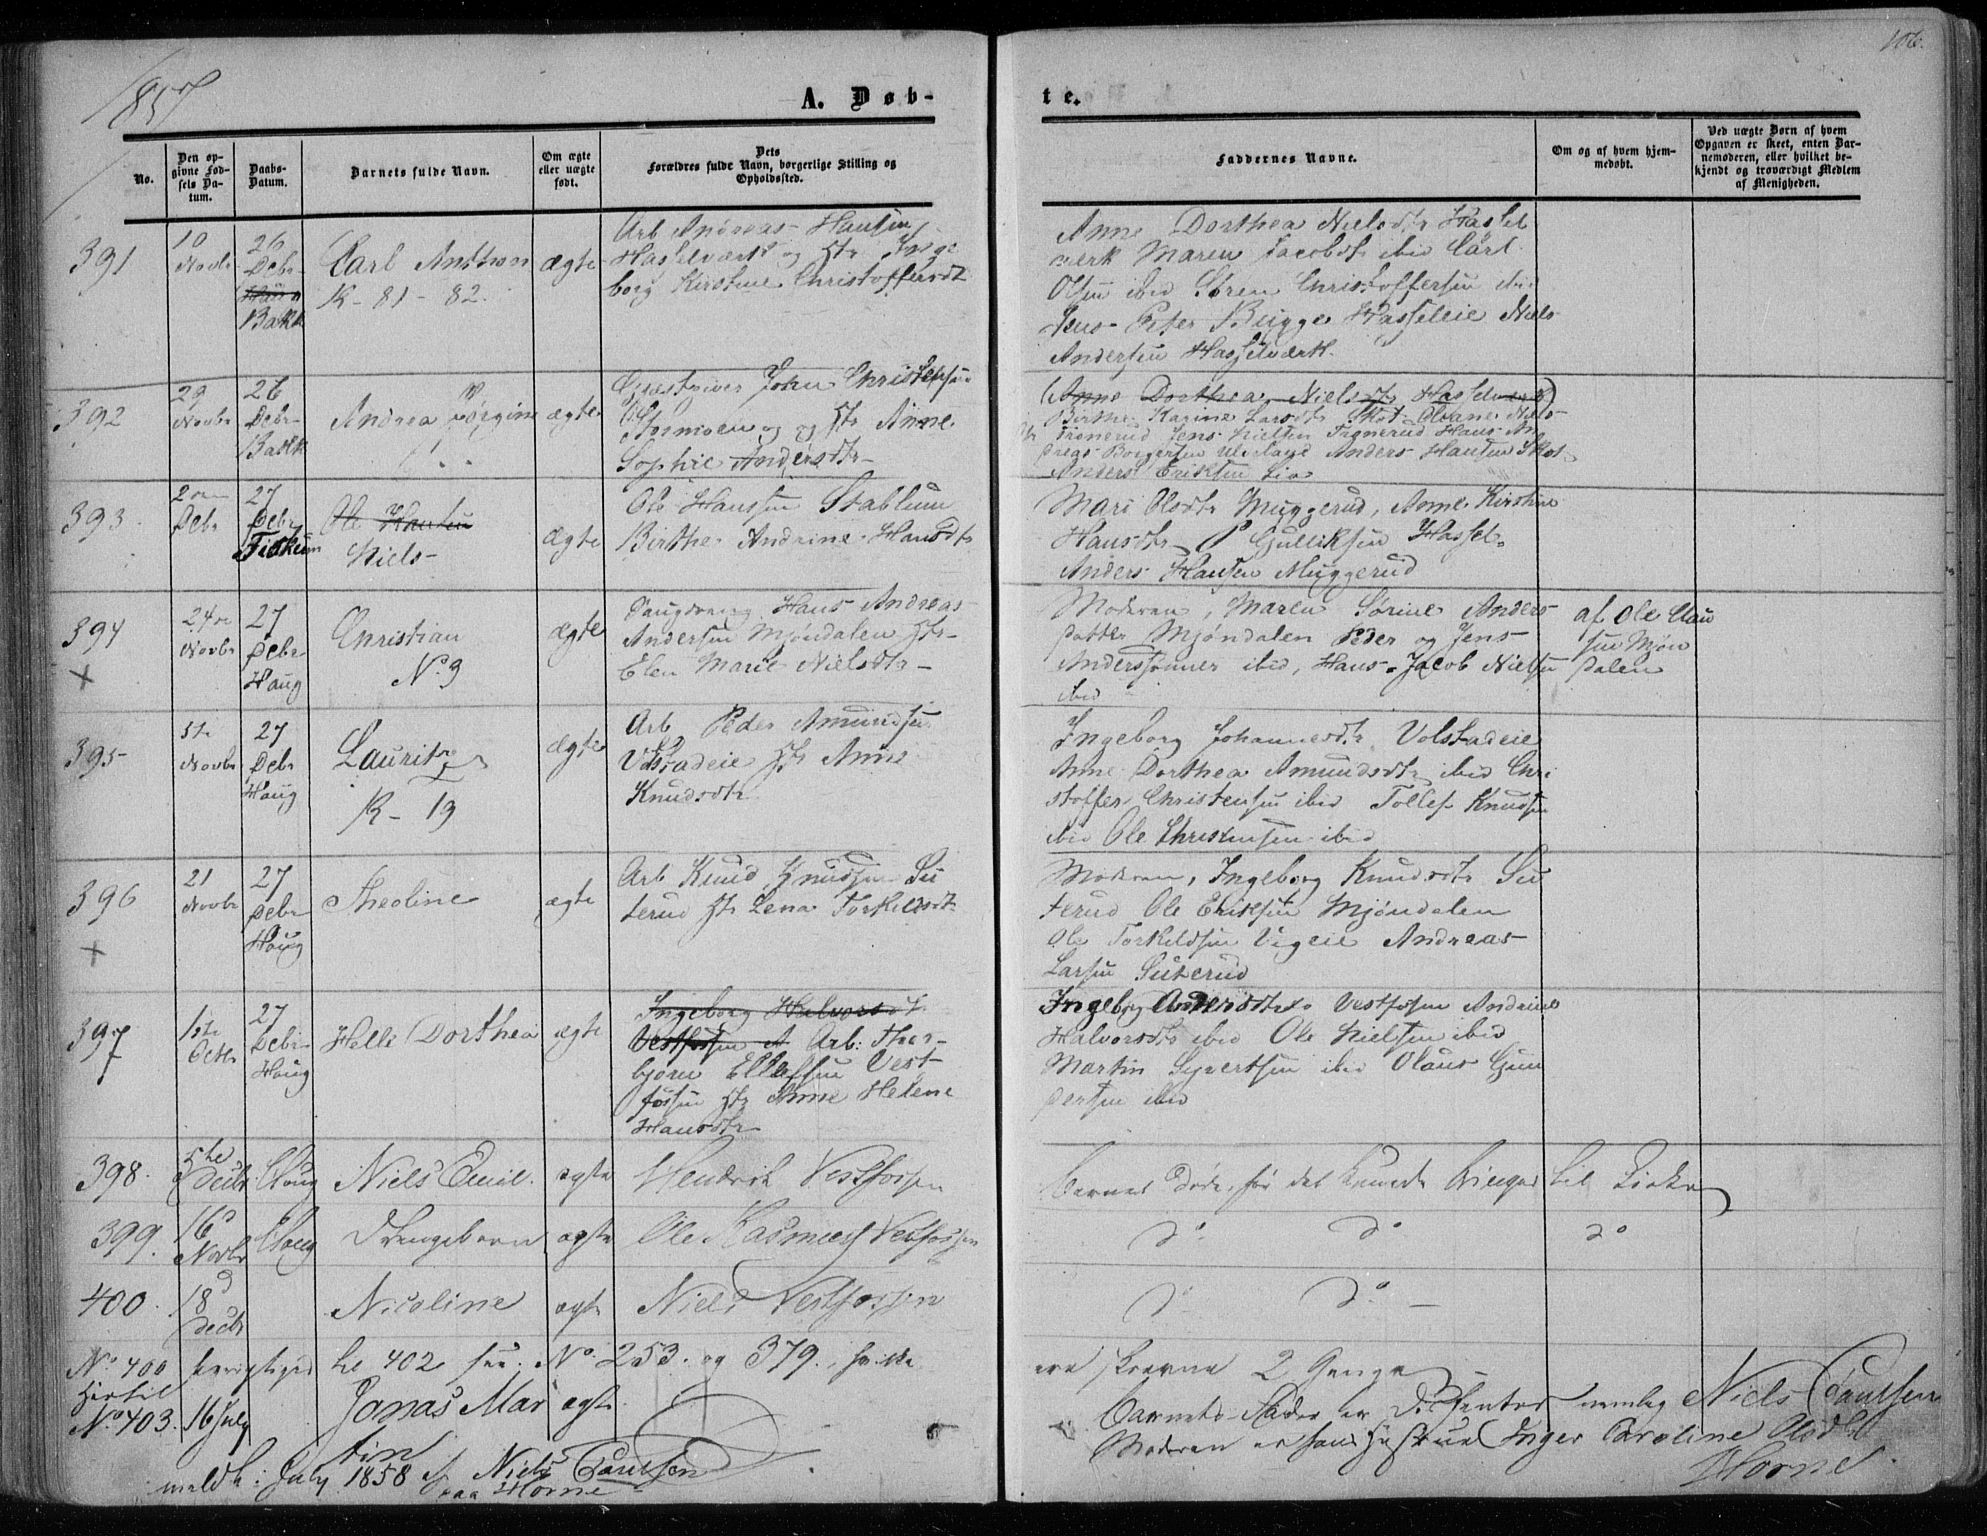 1857
106.
A. Døb-
te.
No.
Den op-
givne Fød-
sels Da-
tum.
Daabs-
Datum.
Barnets fulde Navn.
Om ægte
eller uægte
født.
Dets
Forældres fulde Navn, borgerlige Stilling og
Opholdssted.
Faddernes Navne.
Om og af hvem hjem-
medøbt.
Ved uægte Børn af hvem
Opgaven er skeet, enten Bar-
nemoderen, eller hvilket be-
kjendt og troværdigt Medlem
af Menigheden.
391
10
Novbr
26
Debr
Bakk
Carl Anthon
K- 81- 82.
ægte
Arb Andreas Hansen
Hasselværk og Hstr Inge
borg Kirstine Christoffersdt
Anne Dorthea Nielsdtr Hassel
værk Maren Jacobsdt ibid Carl
Olsen ibid Søren Christoffersen ibid
Jens Peter Bugge Hasseleie Niels
Andersen Hasselværk.
392
29
Novbr
26
Debr
Bakk
Andrea Jørgine
ægte
John Christensen
og Hstr Anne
Sophie Andersdtr
(Anne Dorthea Nielsdtr Hasselværk)
Birthe Karine Larsdtr Skot Oleane Niels
dtr Trønerud Jens Nielsen Trønerud Hans An
dreas Borgersen Anders Hansen Skot
Anders Eriksen Lia
393
2den
Debr
27
Debr
Fiskum
Ole Hansen
Niels
ægte
Ole Hansen Stablum
Birthe Andrine Hansdtr
Mari Olsdtr Muggerud, Anne Kirstine
Hansdtr P Gulliksen Hassel
Anders Hansen Muggerud
394
+
24de
Novbr
27
Debr
Haug
Christian
No 9
ægte
Hans Andreas
Andersen Mjøndalen Hstr
Elen Marie Nielsdtr
Moderen, Maren Sørine Anders
datter Mjøndalen Peder og Jens
Anderssønner ibid, Hans Jacob Nielsen
ibid
af Ole Clau
sen Mjøn
dalen
395
5te
Novbr
27
Debr
Haug
Lauritz
K- 19
ægte
Arb Peder Amundsen
Volstadeie Hstr Anne
Knudsdtr
Ingeborg Johannesdtr Volstadeie
Anne Dorthea Amundsdtr ibid Chri
stoffer Christensen ibid Tollef Knudsen
ibid Ole Christensen ibid
396
+
21
Novbr
27
Debr
Haug
Theoline
ægte
Arb Knud Knudsen Su
terud Hstr Lena Torkildsdtr
Moderen, Ingeborg Knudsdtr Su
terud Ole Eriksen Mjøndalen
Ole Torkildsen Vigeie Andreas
Larsen Suterud
397
1ste
Octbr
27
Debr
Haug
Helle Dorthea
ægte
Ingeborg Halvorsdt
Vestfossen A Arb: Thor-
bjørn Ellefsen Vest-
fossen Hstr Anne Helene
Hansdtr
Ingeborg Andersdtr Vestfossen Andrine
Halvorsdtr ibid Ole Nielsen ibid
Martin Syvertsen ibid Olaus Gun
dersen ibid
398.
5te
Decbr
Haug
Niels Emil.
ægte
Hendrik Vestfossen
Barnet døde, før det kunde bringes til Kirken
399.
16d
Novbr
Haug
Drengebarn
ægte
Ole Rasmussen Vestfossen
do do do
400.
18d
Decbr
Nicoline
ægte
Niels Vestfossen
do do
No 400 berigtiges til 402 see No 253. og 379., hvilke
ere skrevne 2 Gange
Hertil
No 403.
16 July
Jonas Mar
tin
ægte
Barnets Fader er Dissenter nemlig Niels Paulsen
Moderen er hans Hustrue Inger Caroline Olsdtr
Horne.
meldt i July 1858 af Niels Paulsen
paa Horne